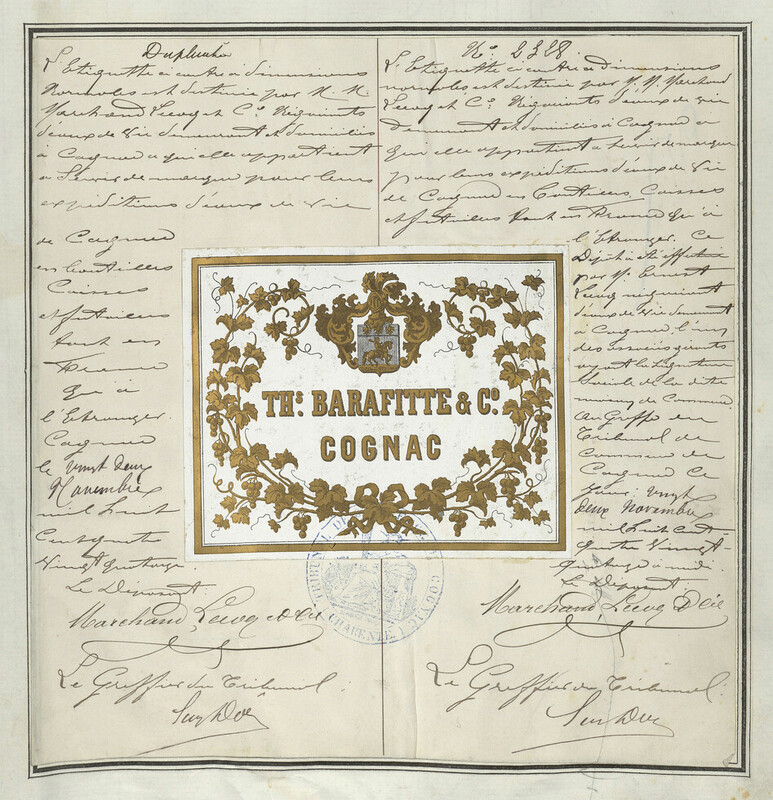 Duplicata
L'Etiquette ci contre à dimensions
normales est destinée par M. M.
Marchand Lecoq et Cie Négociants
d'eaux de vie demeurant et domiciliés
à Cognac à qui elle appartient
à Servir de marque pour leurs
expéditions d'eaux de vie
de Cognac
en bouteilles
Caisses
et futailles
tant en
France
qu'à
l'Etranger.
Cognac
le vingt deux
Novembre
mil huit
Cent quatre
Vingt quatorze
Le Déposant.
Marchand, Lecoq & Cie
Le Greffier du Tribunal.
No. 2328.
L'Etiquette ci contre à dimensions
normales est destinée par M. M. Marchand
Lecoq et Cie Négociants d'eaux de vie
demeurant et domiciliés à Cognac à
qui elle appartient à Servir de marque
pour leurs expéditions d'eaux de Vie
de Cognac en bouteilles, Caisses
et futailles tant en France qu'à
l'Etranger. Ce
Dépôt a été effectué
par M. Ernest
Lecoq négociant
d'eaux de Vie demeurant
à Cognac l'un
des associés gérants
ayant la signature
sociale de la dite
maison de Commerce.
Au Greffe du
Tribunal de
Commerce de
Cognac Ce
Jour vingt
deux Novembre
mil huit cent
quatre Vingt-
quatorze à midi.
Le Déposant.
Marchand, Lecoq & Cie
Le Greffier du Tribunal.
THS. BARAFITTE & CO.
COGNAC
TRIBUNAL DE COGNAC
CHARENTE